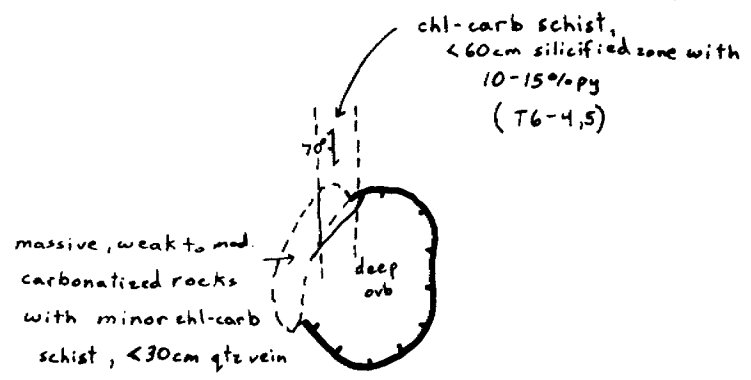 chl-carb schist,
<60cm silicified zone with
10-15% py
(T6-4,5)
70°
massive, weak to mod.
carbonatized rocks
with minor chl-carb
schist, <30cm qtz vein
deep
ovb